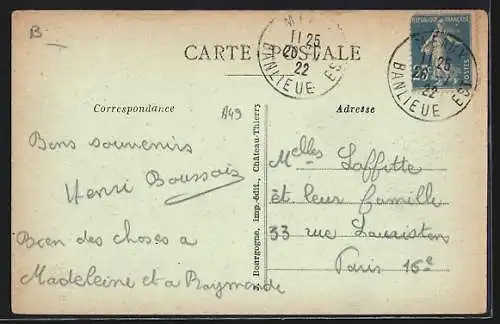 B
CARTE POSTALE
11 25
22
BANLIEUE EST
REPUBLIQUE FRANÇAISE
25
POSTES
11 25
22
BANLIEUE EST
Correspondance
A49
Adresse
Bons souvenirs
Henri Boussois
Bien des choses a
Madeleine et a Raymonde
Bourgogne, Imp.-édit., Château-Thierry
Melles Laffitte
et leur famille
33 rue Lauriston
Paris 16e